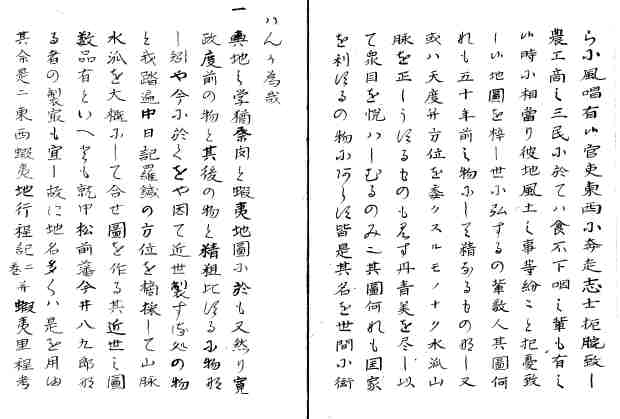 ら小風唱有小官吏東西小奔走志士扼腕致し
農工商之三民小於てハ食不下咽之輩も有之
此時小相當り彼地風土之事等紛こと把憂致
し小地圖を梓し世小弘するの輩数人其圖何
れも五十年前之物小し而精なるもの那し又
或ハ天度并方位を委クスルモノナク水泒山
脉を正しうするものも見す丹青美を尽し以
て衆目を悦ハしむるのみ二其圖何れも国家
を利するの物小あらす皆是其名を世間小衒
ハんる為哉
一輿地之学猶奈向と蝦夷地圖小於も又然り寛
政度前の物と其後の物と精粗比するル物那
し矧や今小於くをや因て近世製する処の物
と我踏遍中日記羅鍼の方位を摘採して山脉
水泒を大概小して合せ圖を作る其近世之圖
数品有といへとも就中松前藩今井八九郎那
る者の製最も宜し故に地名多くハ是を用由
其余是二東西蝦夷地行程記巻二并蝦夷里程考